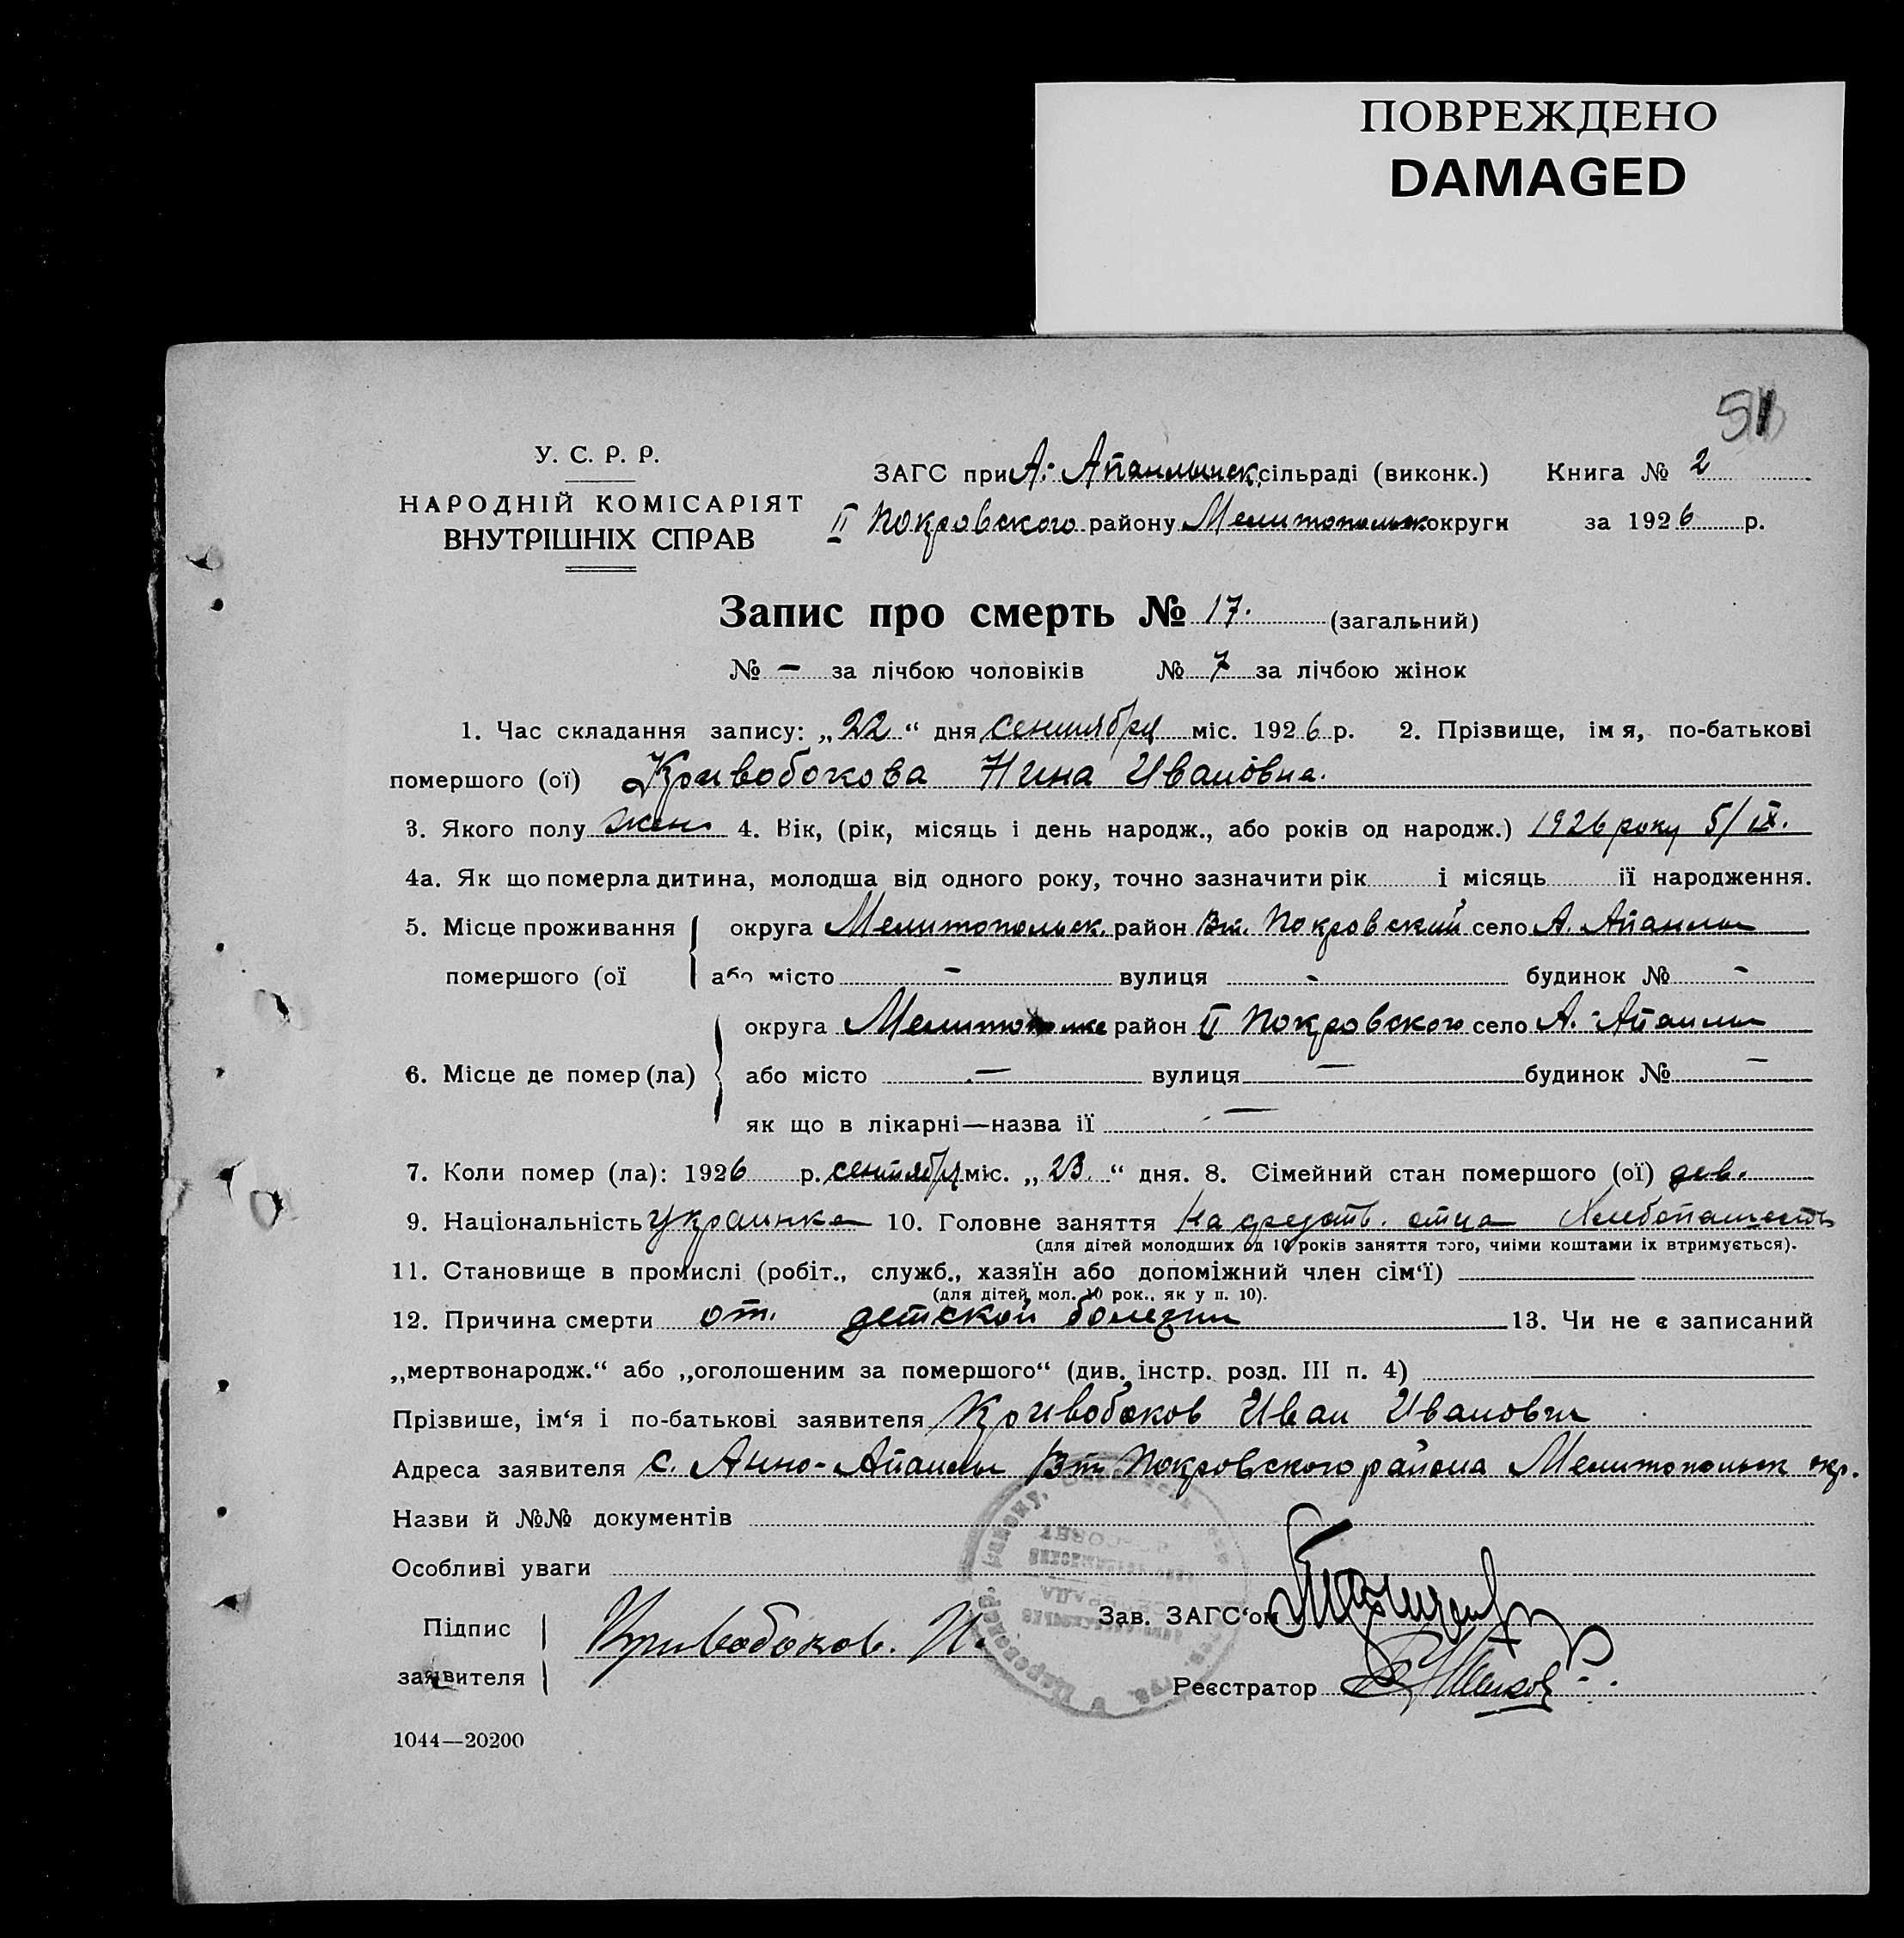 ПОВРЕЖДЕНО
DAMAGED
51
У. С. Р. Р.
НАРОДНІЙ КОМІСАРІЯТ
ВНУТРІШНІХ СПРАВ
ЗАГС при А. Апанлынск. сільраді (виконк.) Книга № 2
II Покровского району Мелитопольск округи за 1926 р.
Запис про смерть № 17. (загальний)
№ – за лічбою чоловіків № 7 за лічбою жінок
1. Час складання запису: „22“ дня сентября міс. 1926 р. 2. Прізвище, імя, по-батькові
помершого (ої) Кривобокова Нина Ивановна.
3. Якого полу жен 4. Вік, (рік, місяць і день народж., або років од народж.) 1926 року 5/IX.
4а. Як що померла дитина, молодша від одного року, точно зазначити рік і місяць її народження.
5. Місце проживання округа Мелитопольск. район Вт. Покровский село А. Апанлы
помершого (ої або місто – вулиця - будинок № -
округа Мелитопольке район II Покровского село А. Апанлы
6. Місце де помер (ла) або місто — вулиця — будинок № —
як що в лікарні—назва її —
7. Коли помер (ла): 1926 р. сентября міс. „23.“ дня. 8. Сімейний стан помершого (ої) дев.
9. Національність украинка 10. Головне заняття На средств. отца Хлебопашость
(для дітей молодших од 10 років заняття того, чиїми коштами їх втримується).
11. Становище в промислі (робіт., служб., хазяїн або допоміжний член сім‘ї)
(для дітей мол. 10 рок., як у п. 10).
12. Причина смерти от. детской болезни 13. Чи не є записаний
„мертвонародж.“ або „оголошеним за помершого“ (див. інстр. розд. III п. 4)
Прізвише, ім‘я і по-батькові заявителя Кривобоков Иван Иванович
Адреса заявителя с. Анно-Апанлы Вт Покровского района Мелитопольск окр.
Назви й №№ документів
Особливі уваги
Підпис
заявителя
Кривобоков. И.
Зав. ЗАГС‘ом
Реєстратор
1044—20200